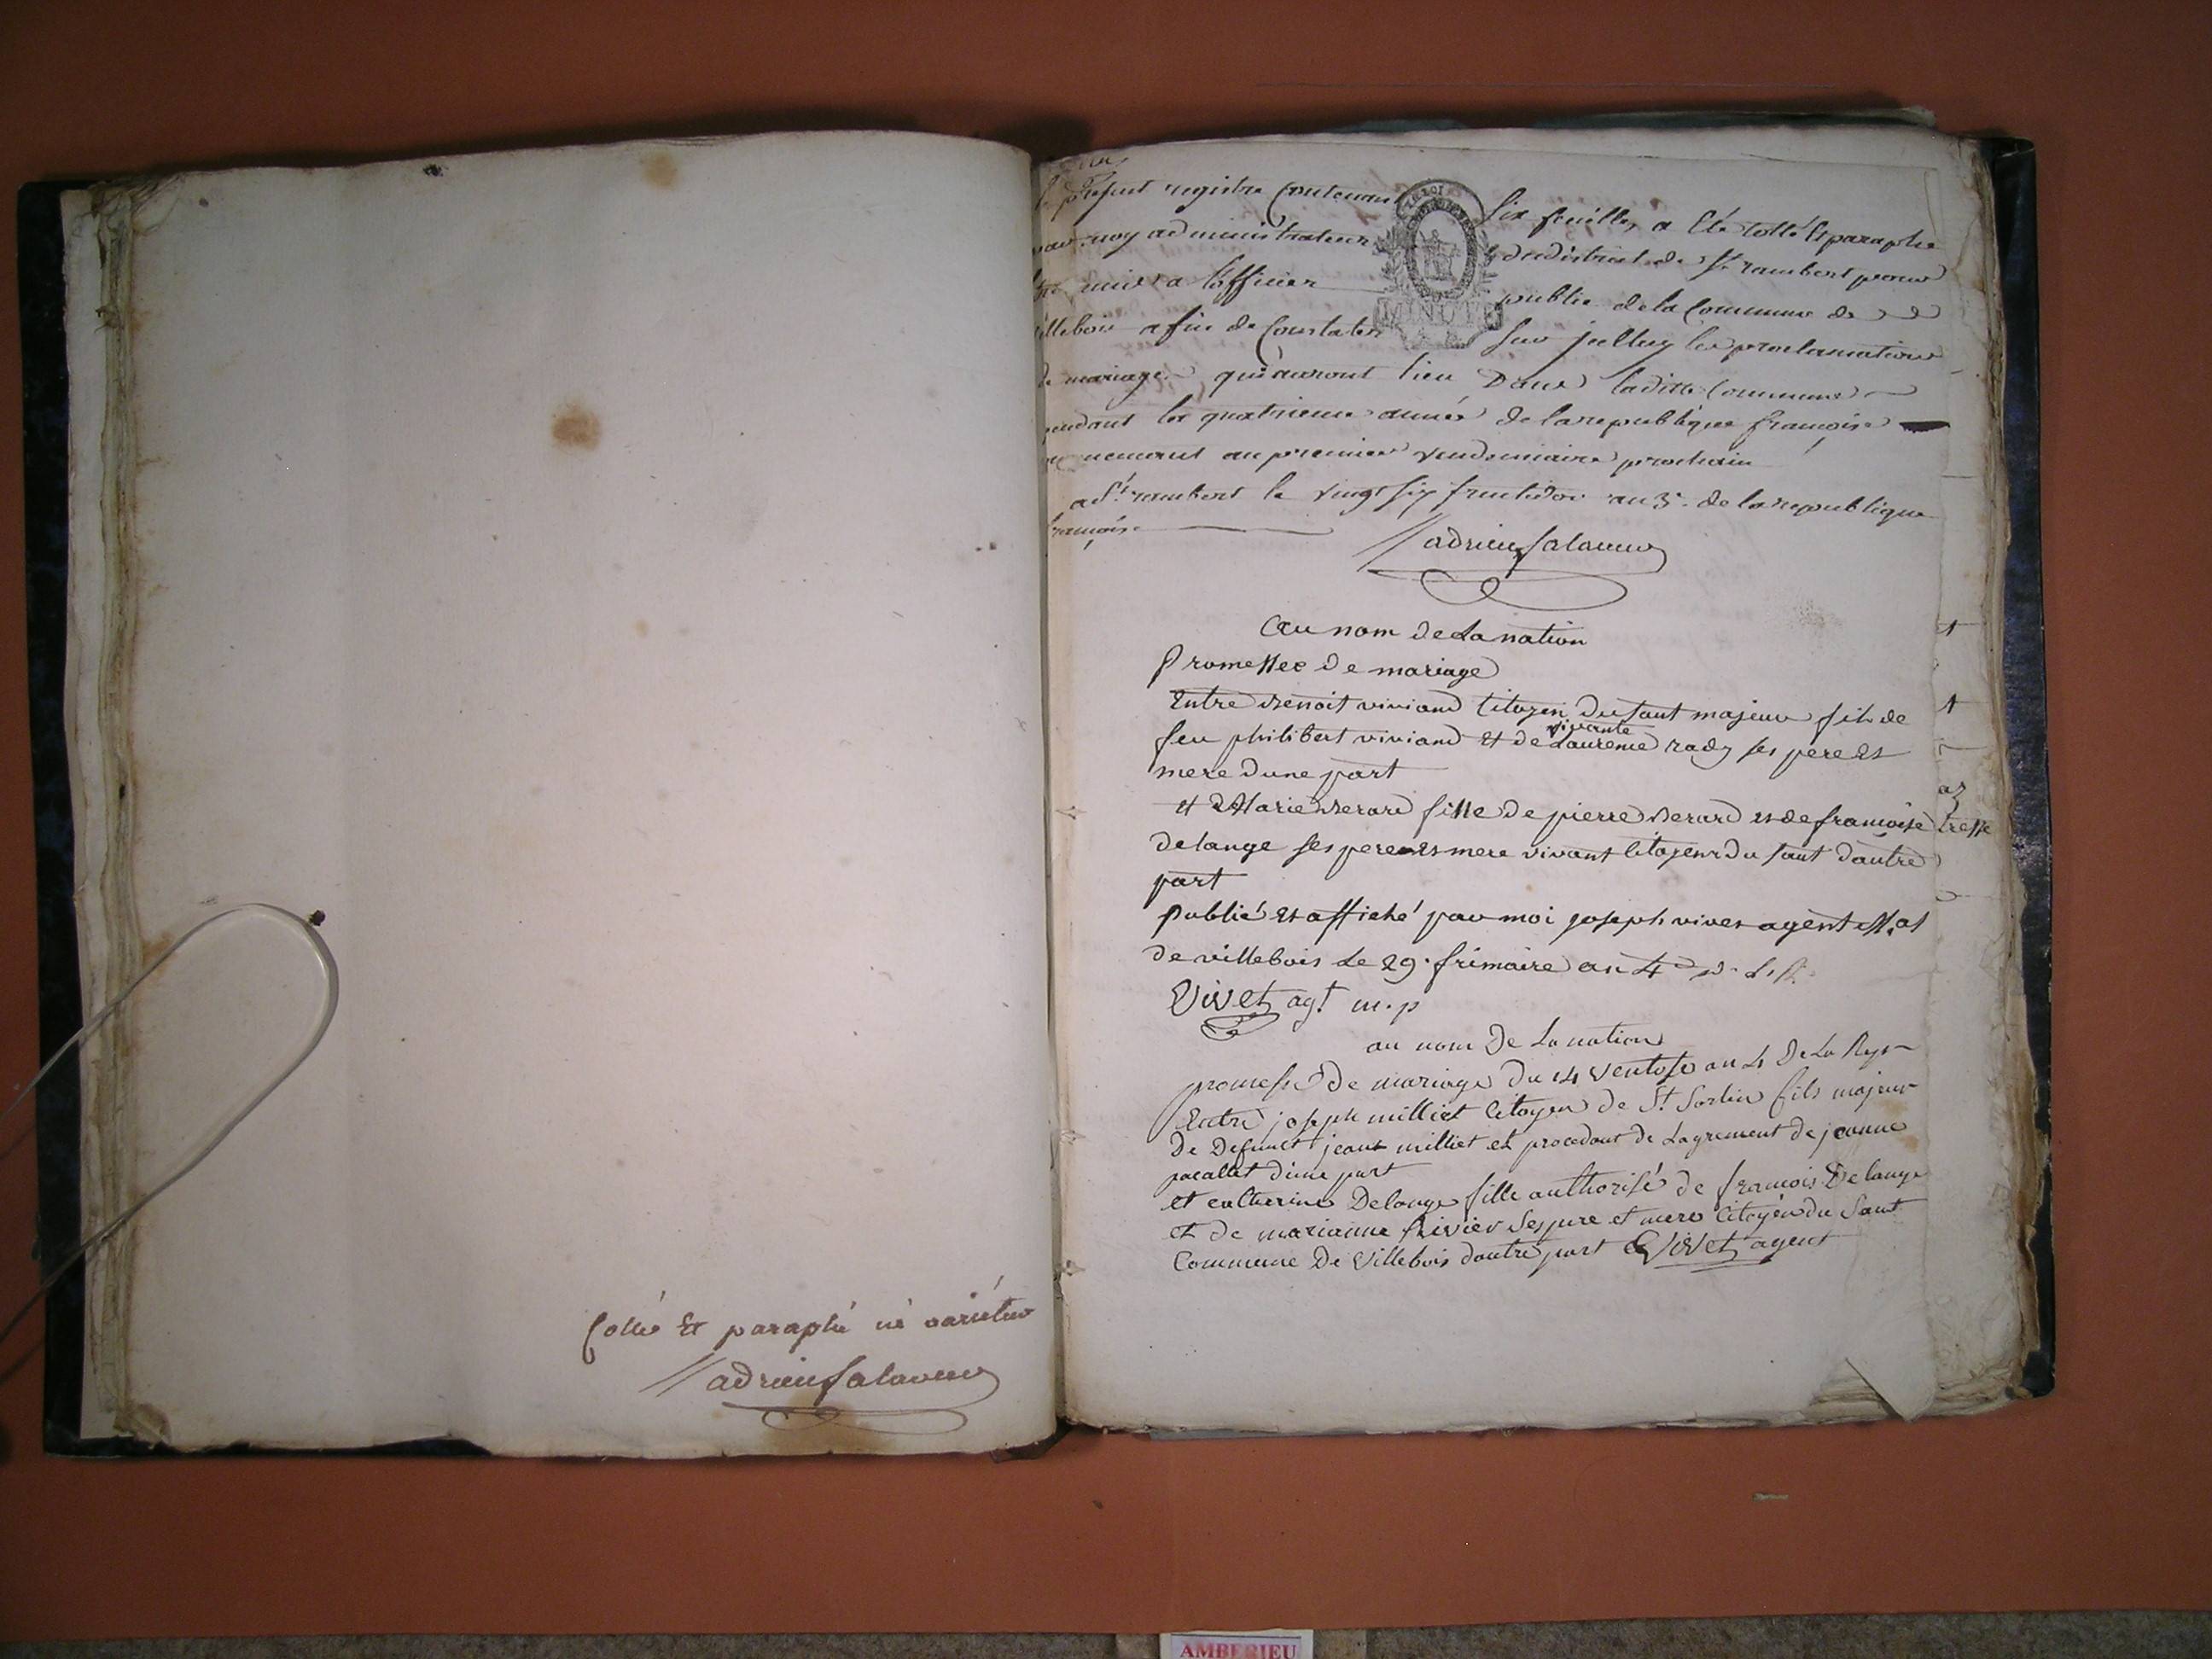 Cotté Et paraphé nè varietur
adrien Salavuw
present registre Contenant six feuilles a Eté Cotté & paraphé
par moy administrateur du district de St rambert pour
mis a l'officier public de la Commune de
villebois afin de Constater sur jcelluy les proclamations
de mariage qui auront lieu Dans laditte Commune
pendant la quatrieme année de la republique françoise
au premier vendemiaire prochain
a St rambert le vingt six fructidor an 3e de la republique
françoise
adrien
MINUTE
Au nom De La nation
Promesses De mariage
Entre Benoit viviand Citoyen Du Saut majeur fils de
feu philibert viviand Et de vivante Laurence rady ses pere Et
mere Dune part
Et Marie Berard fille De pierre Berard Et de françoise
Delange ses pere Et mere vivant Citoyens Du Saut Dautre
part
Publié Et affiché par moi joseph vivet agent
De villebois Le 29 frimaire an 4e
Vivet agt m.p
au nom De La nation
promesse De mariage Du 14 Ventose an 4 De La Rep
Entre joseph milliet Citoyen De St Sorlin fils majeur
De Defunct jean milliet et procedant De Lagrement De jeanne
pacallet Dune part
et catherine Delange fille authorisé de francois Delange
et De marianne Rivier Ses pere et mere Citoyen du Saut
Commune De Villebois dautre part Vivet agent
AMBERIEU